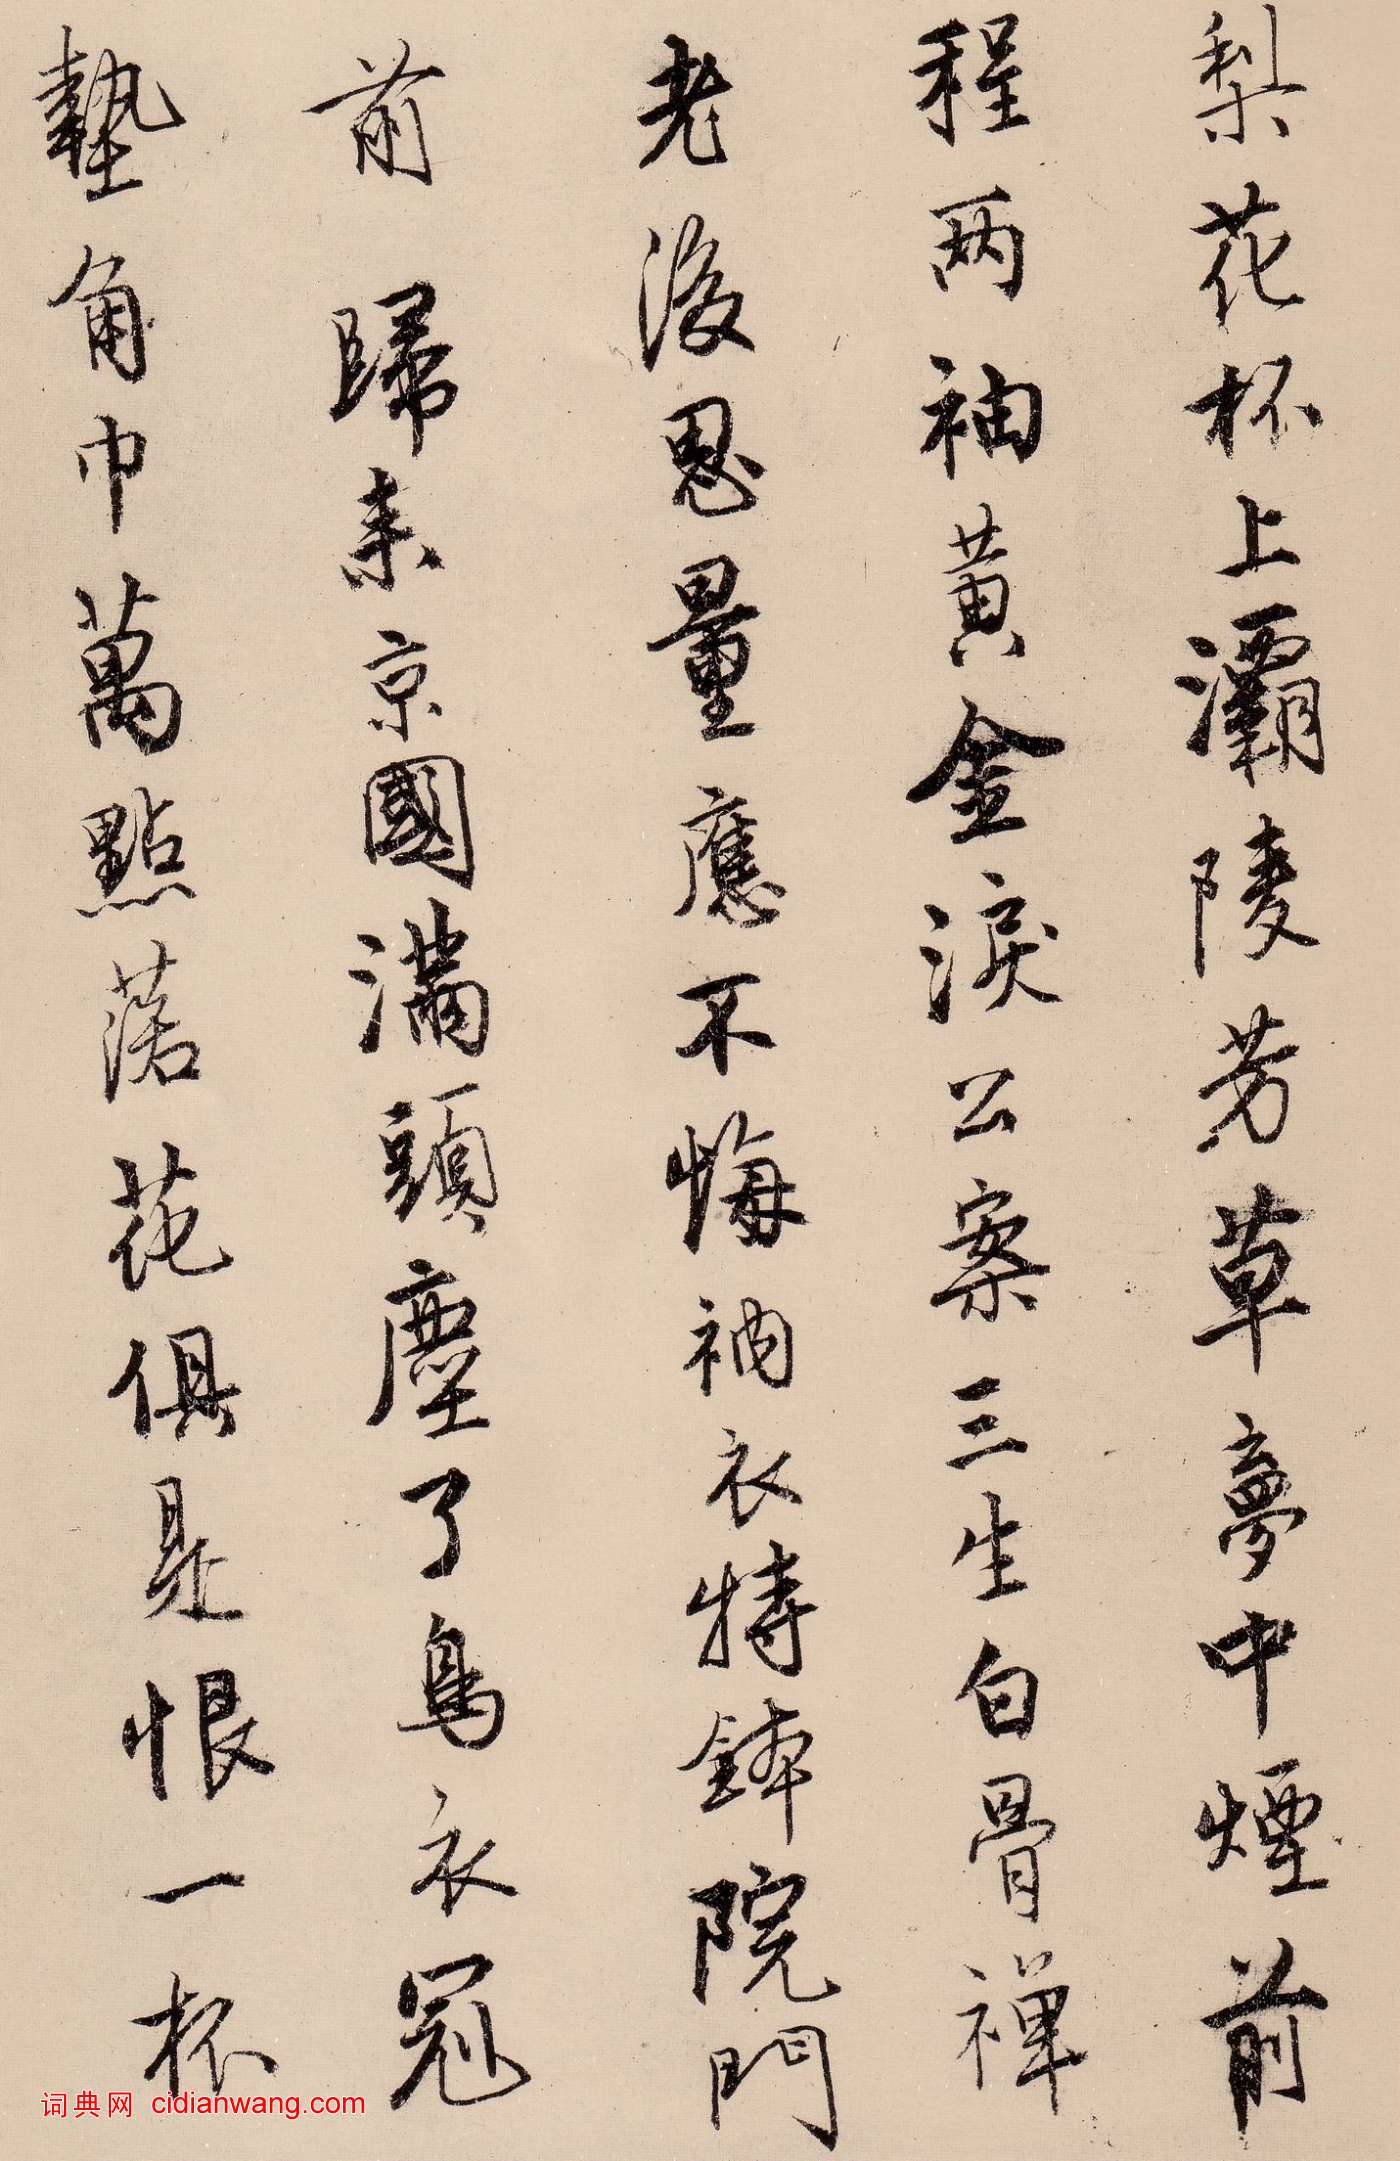 梨花杯上灞陵芳草夢中煙前
程两袖黄金淚公案三生白骨禅
老後思量應不悔衲衣持鉢院門
前 歸来京國滿頭塵了鳥衣冠
墊角巾萬點落花俱是恨一杯
词典网 cidianwang.com